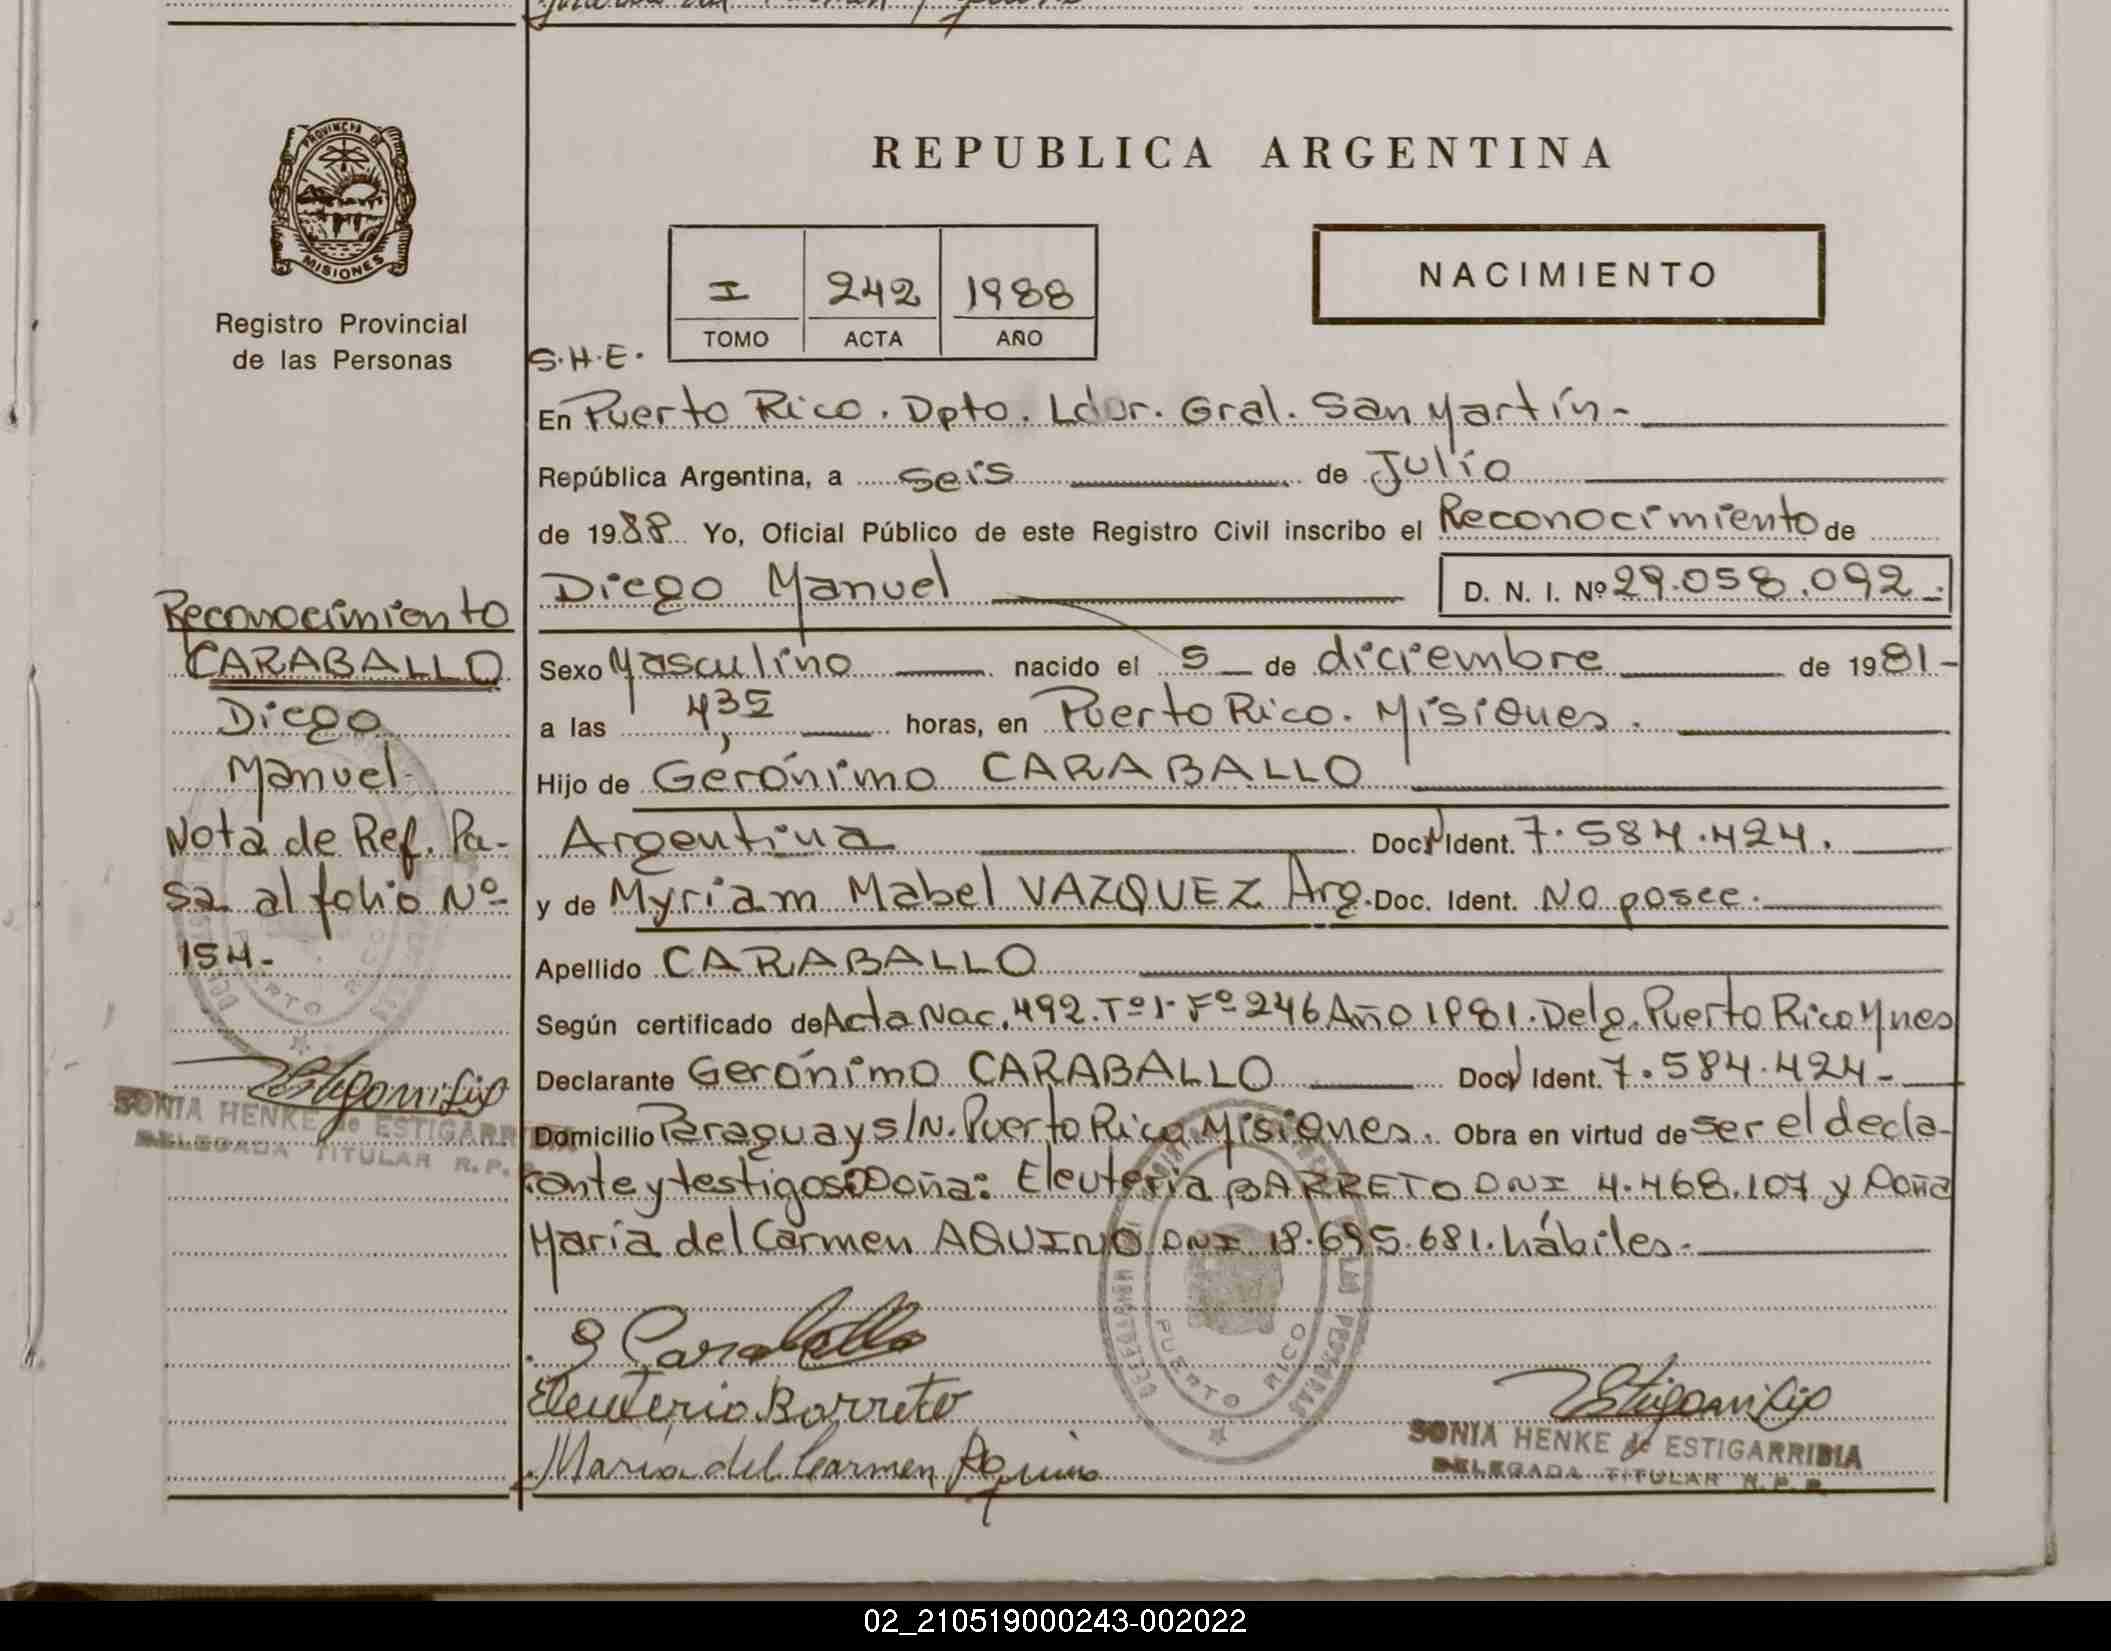 PROVINCIA DE
MISIONES
Registro Provincial
de las Personas
REPUBLICA ARGENTINA
I 242 1988
TOMO ACTA AÑO
NACIMIENTO
S.H.E.
En Puerto Rico. Dpto. Ldor. Gral. San Martín-
República Argentina, a seis de Julio
de 1988 Yo, Oficial Público de este Registro Civil inscribo el Reconocimiento de
Diego Manuel D. N. I. Nº 29.058.092.-
Sexo Masculino nacido el 5 de diciembre de 1981-
a las 4,35 horas, en Puerto Rico. Misiones.
Hijo de Gerónimo CARABALLO
Argentina Doc. Ident. 7.584.424.
y de Myriam Mabel VAZQUEZ Arg. Doc. Ident. No posee.
Apellido CARABALLO
Según certificado de Acta Nac. 492. Tº 1- Fº 246 Año 1981. Deleg. Puerto Rico Mnes
Declarante Gerónimo CARABALLO Doc. Ident. 7.584.424-
Domicilio Paraguay s/N. Puerto Rico Misiones. Obra en virtud de ser el decla-
rante y testigos: Doña: Eleuteria BARRETO DNI 4.468.107 y Doña
María del Carmen AQUINO DNI 18.695.681. hábiles.
G Caraballo
Eleuteria Barreto
María del Carmen Aquino
PUERTO RICO
SONIA HENKE de ESTIGARRIBIA
DELEGADA TITULAR R.P.P.
Reconocimiento
CARABALLO
Diego
Manuel
Nota de Ref. Pa-
sa al folio Nº
154-
PUERTO RICO
SONIA HENKE de ESTIGARRIBIA
DELEGADA TITULAR R.P.
02_210519000243-002022